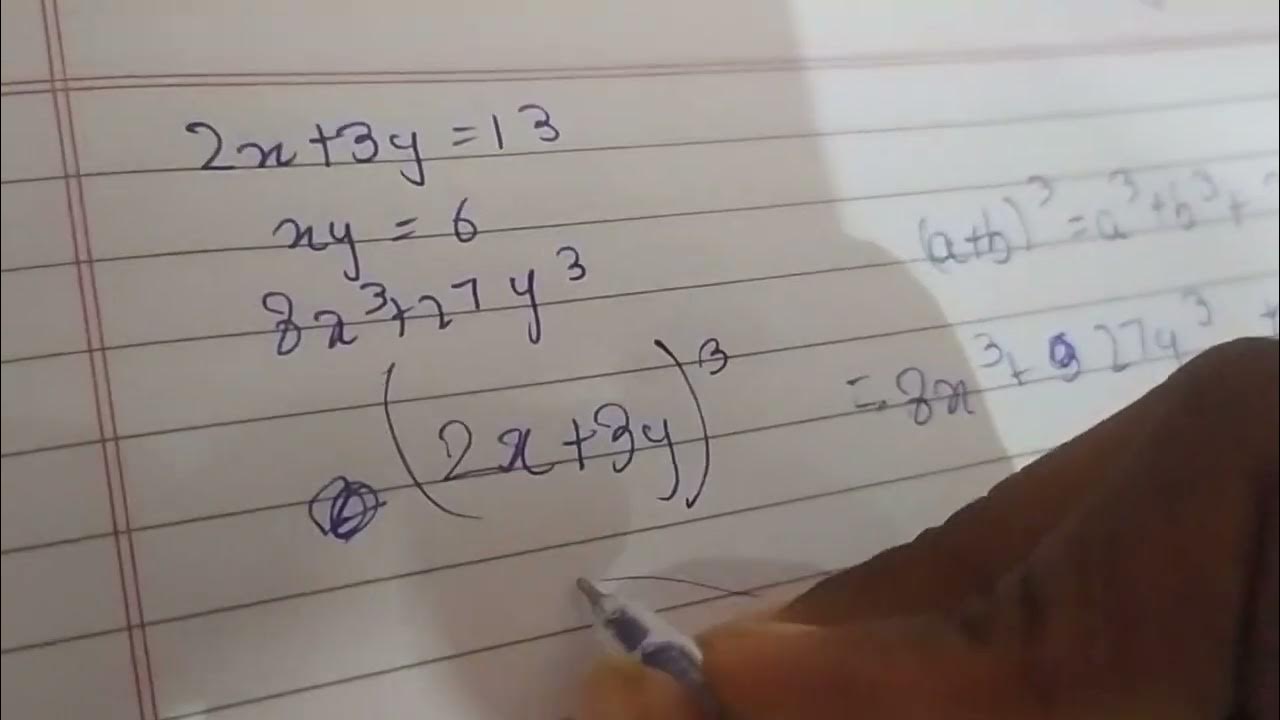 2x+3y=13
xy = 6
8x³+27y³
(2x+3y)³
(a+b)³=a³+b³+
=8x³+27y³+